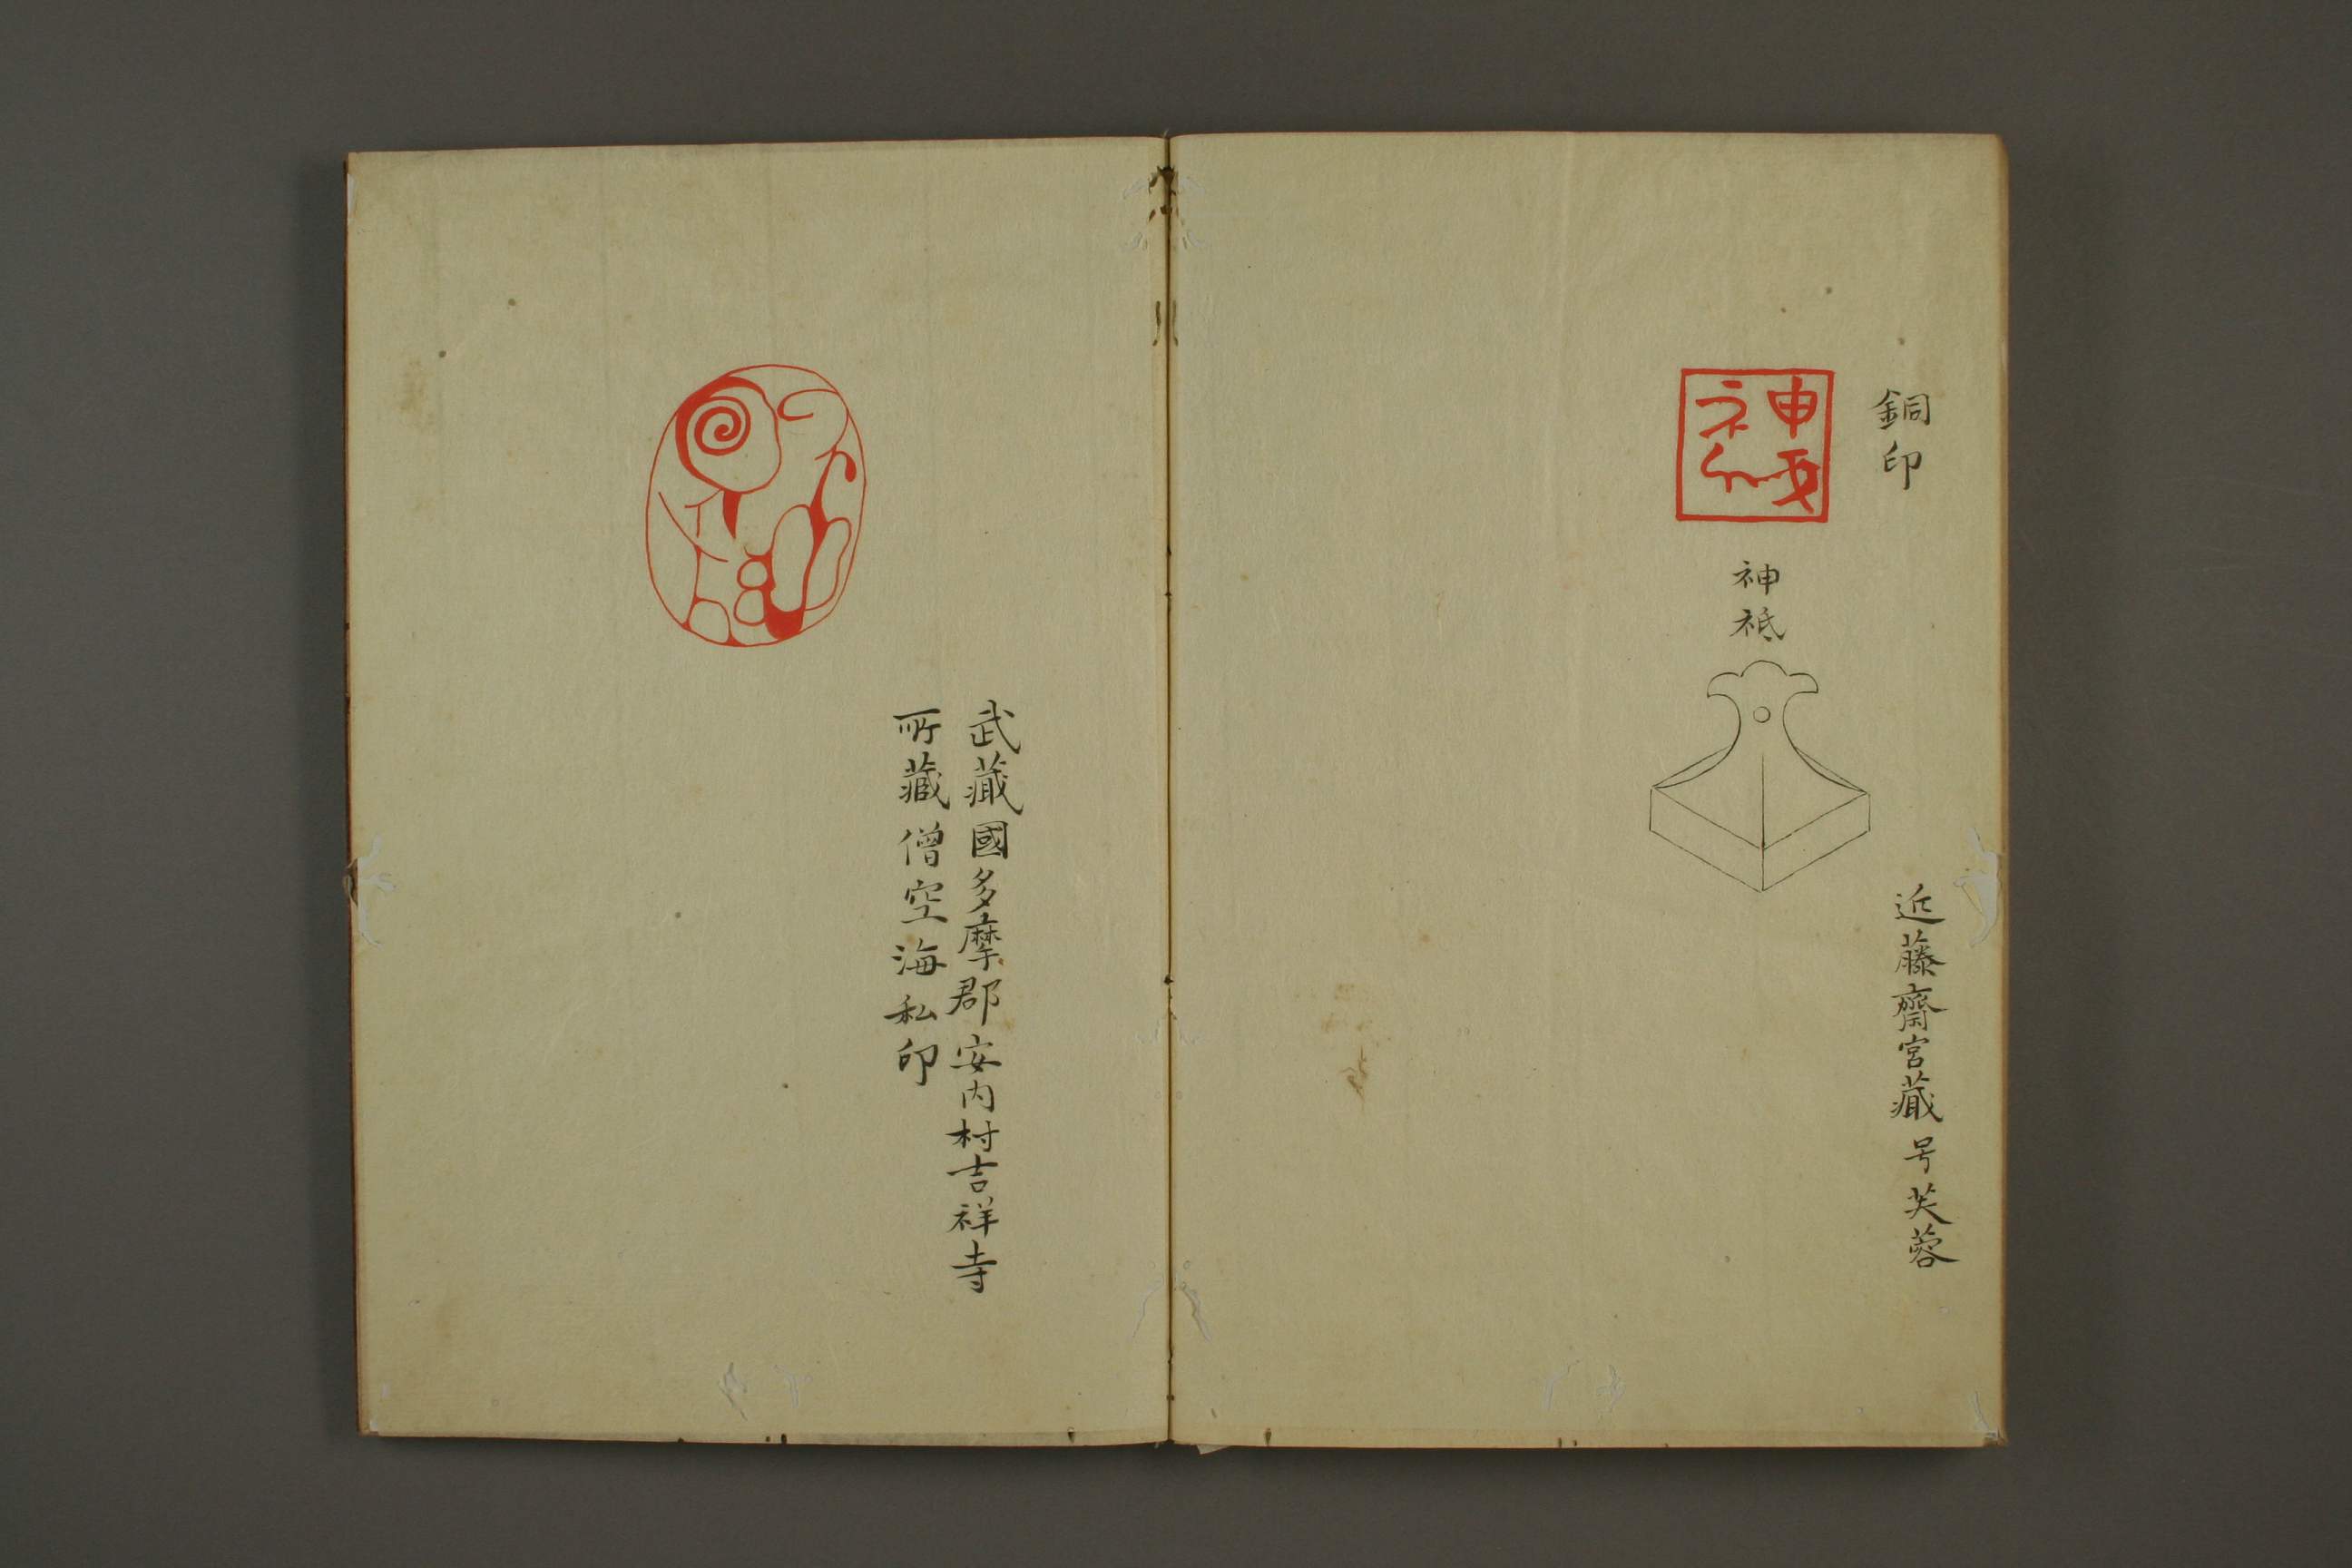 銅印
神祇
近藤齋宮蔵号芙蓉
武蔵國多摩郡安内村吉祥寺
所蔵僧空海私印